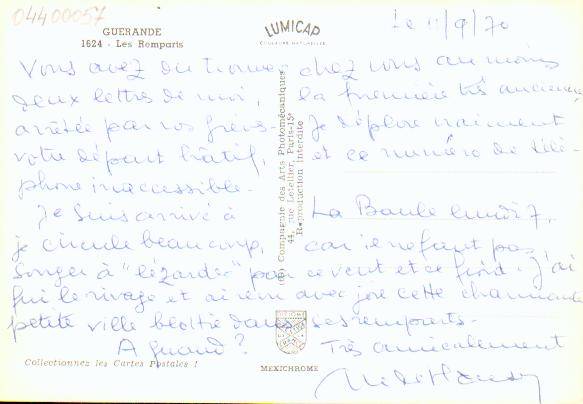 04400057
GUERANDE
1624 - Les Remparts
LUMICAP
COULEURS NATURELLES
Le 11/9/70
Vous avez du trouver chez vous au moins
deux lettres de moi, la première très ancienne
arrêtée par vos grèves. Je déplore vraiment
votre départ hâtif, et ce numéro de télé-
phone inaccessible.
Je suis arrivé à La Baule lundi 7,
je circule beaucoup, car il ne faut pas
songer à "lézarder" par ce vent et ce froid. J'ai
fui le rivage et ai revu avec joie cette charmante
petite ville blottie dans ses remparts.
A quand? Très amicalement
(C) Compagnie des Arts Photomécaniques
44, rue Letellier, Paris-15e
Reproduction interdite
Collectionnez les Cartes Postales !
MEXICHROME